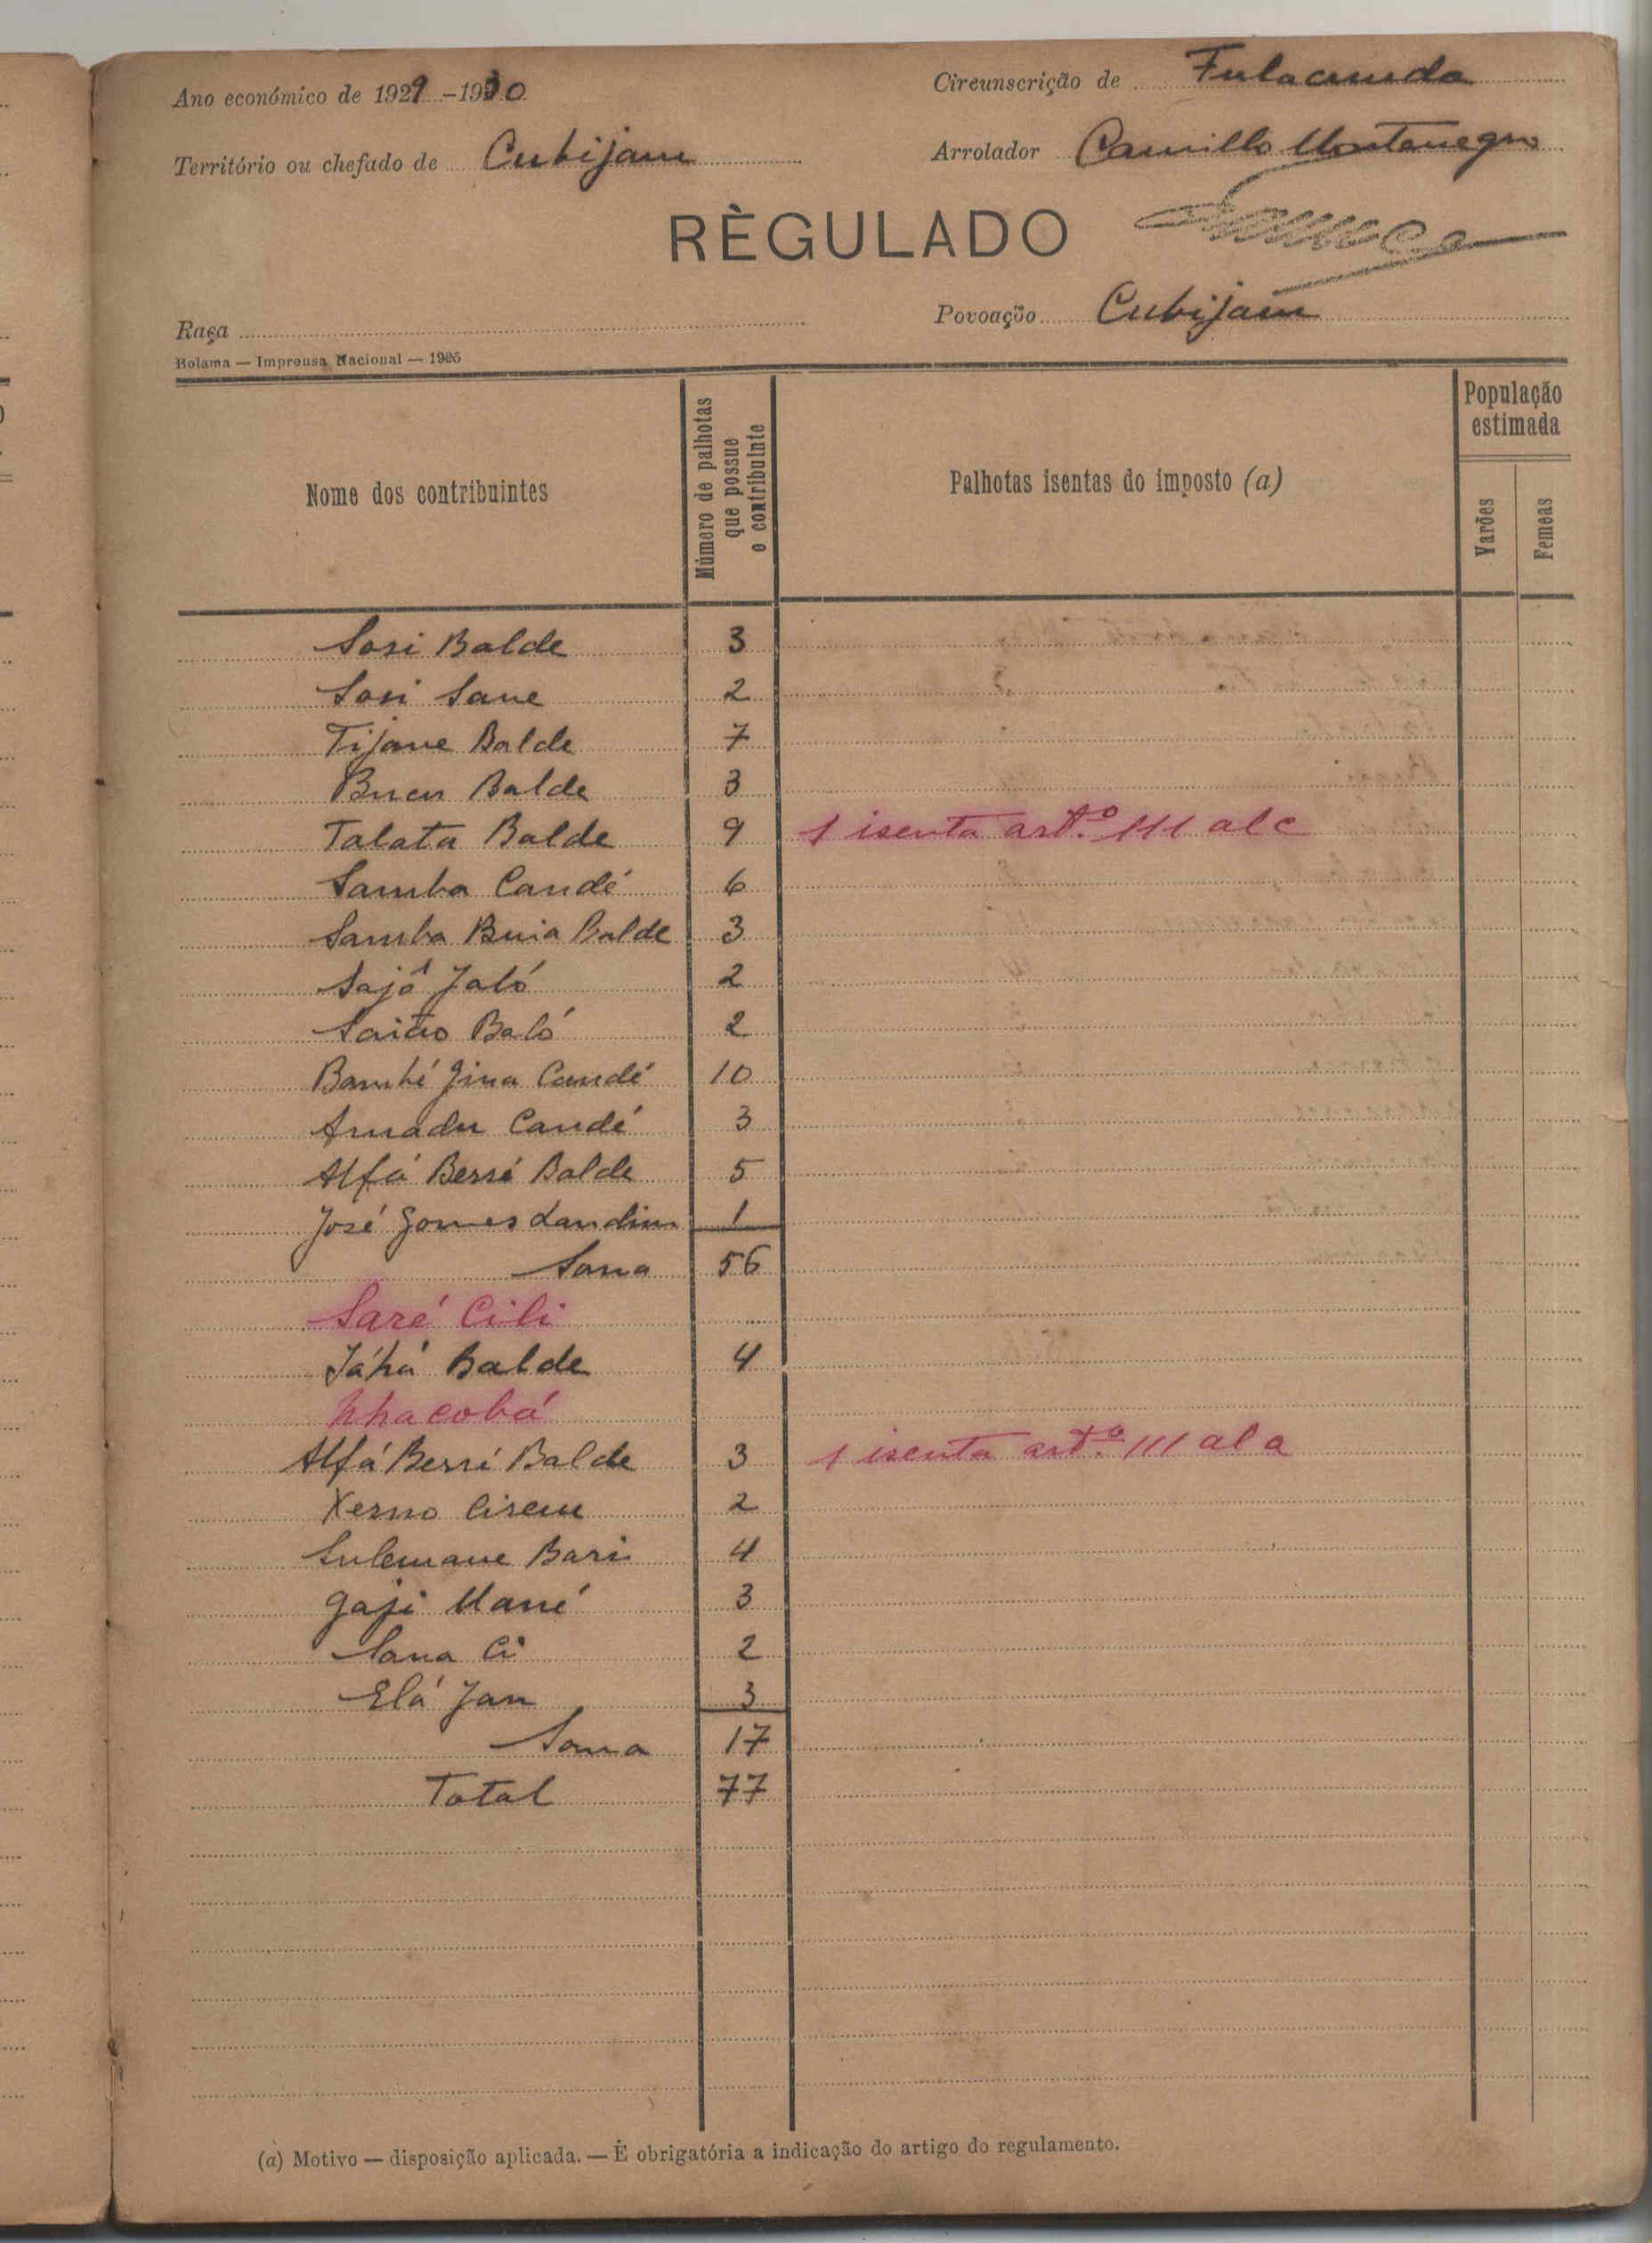 Ano económico de 1929-1930
Circunscrição de Fulacunda
Território ou chefado de Cubijam
Arrolador Camillo Montenegro
RÈGULADO
Raça
Povoação Cubijam
Bolama — Imprensa Nacional — 1925
Nome dos contribuintes
Número de palhotas que possue o contribuinte
Palhotas isentas do imposto (a)
População estimada
Varões
Femeas
Sori Balde 3
Sori Sane 2
Tijane Balde 7
Bucu Balde 3
Talata Balde 9 1 isenta artº 111 al c
Samba Candé 6
Samba Buia Balde 3
Sajô Jaló 2
Saião Baló 2
Bambé Jina Candé 10
Amadu Candé 3
Alfá Berré Balde 5
José Gomes Landim 1
Soma 56
Saré Cili
Jáhá Balde 4
Nhacobá
Alfá Berré Balde 3 1 isenta artº 111 al a
Xerno Cirem 2
Sulemane Bari 4
Gaji Mané 3
Sana Ci 2
Elá Jan 3
Soma 17
Total 77
(a) Motivo — disposição aplicada. — È obrigatória a indicação do artigo do regulamento.